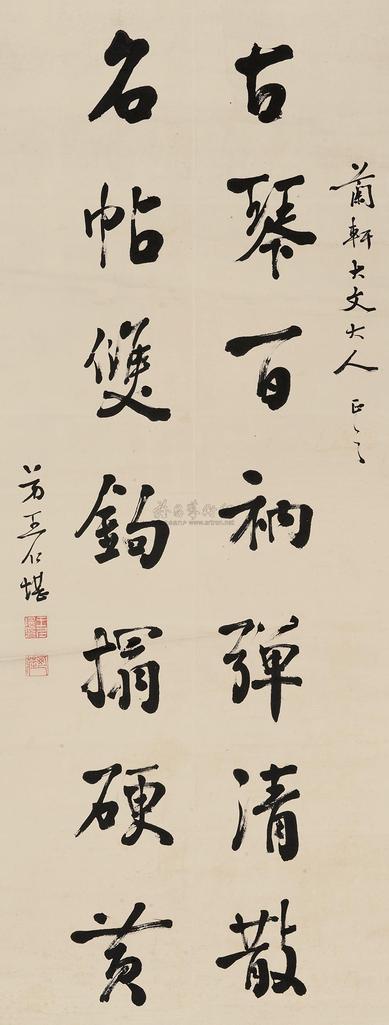 蘭軒大文大人正之
古琴百衲彈清散
名帖雙鈎搨硬黃
弟王仁堪